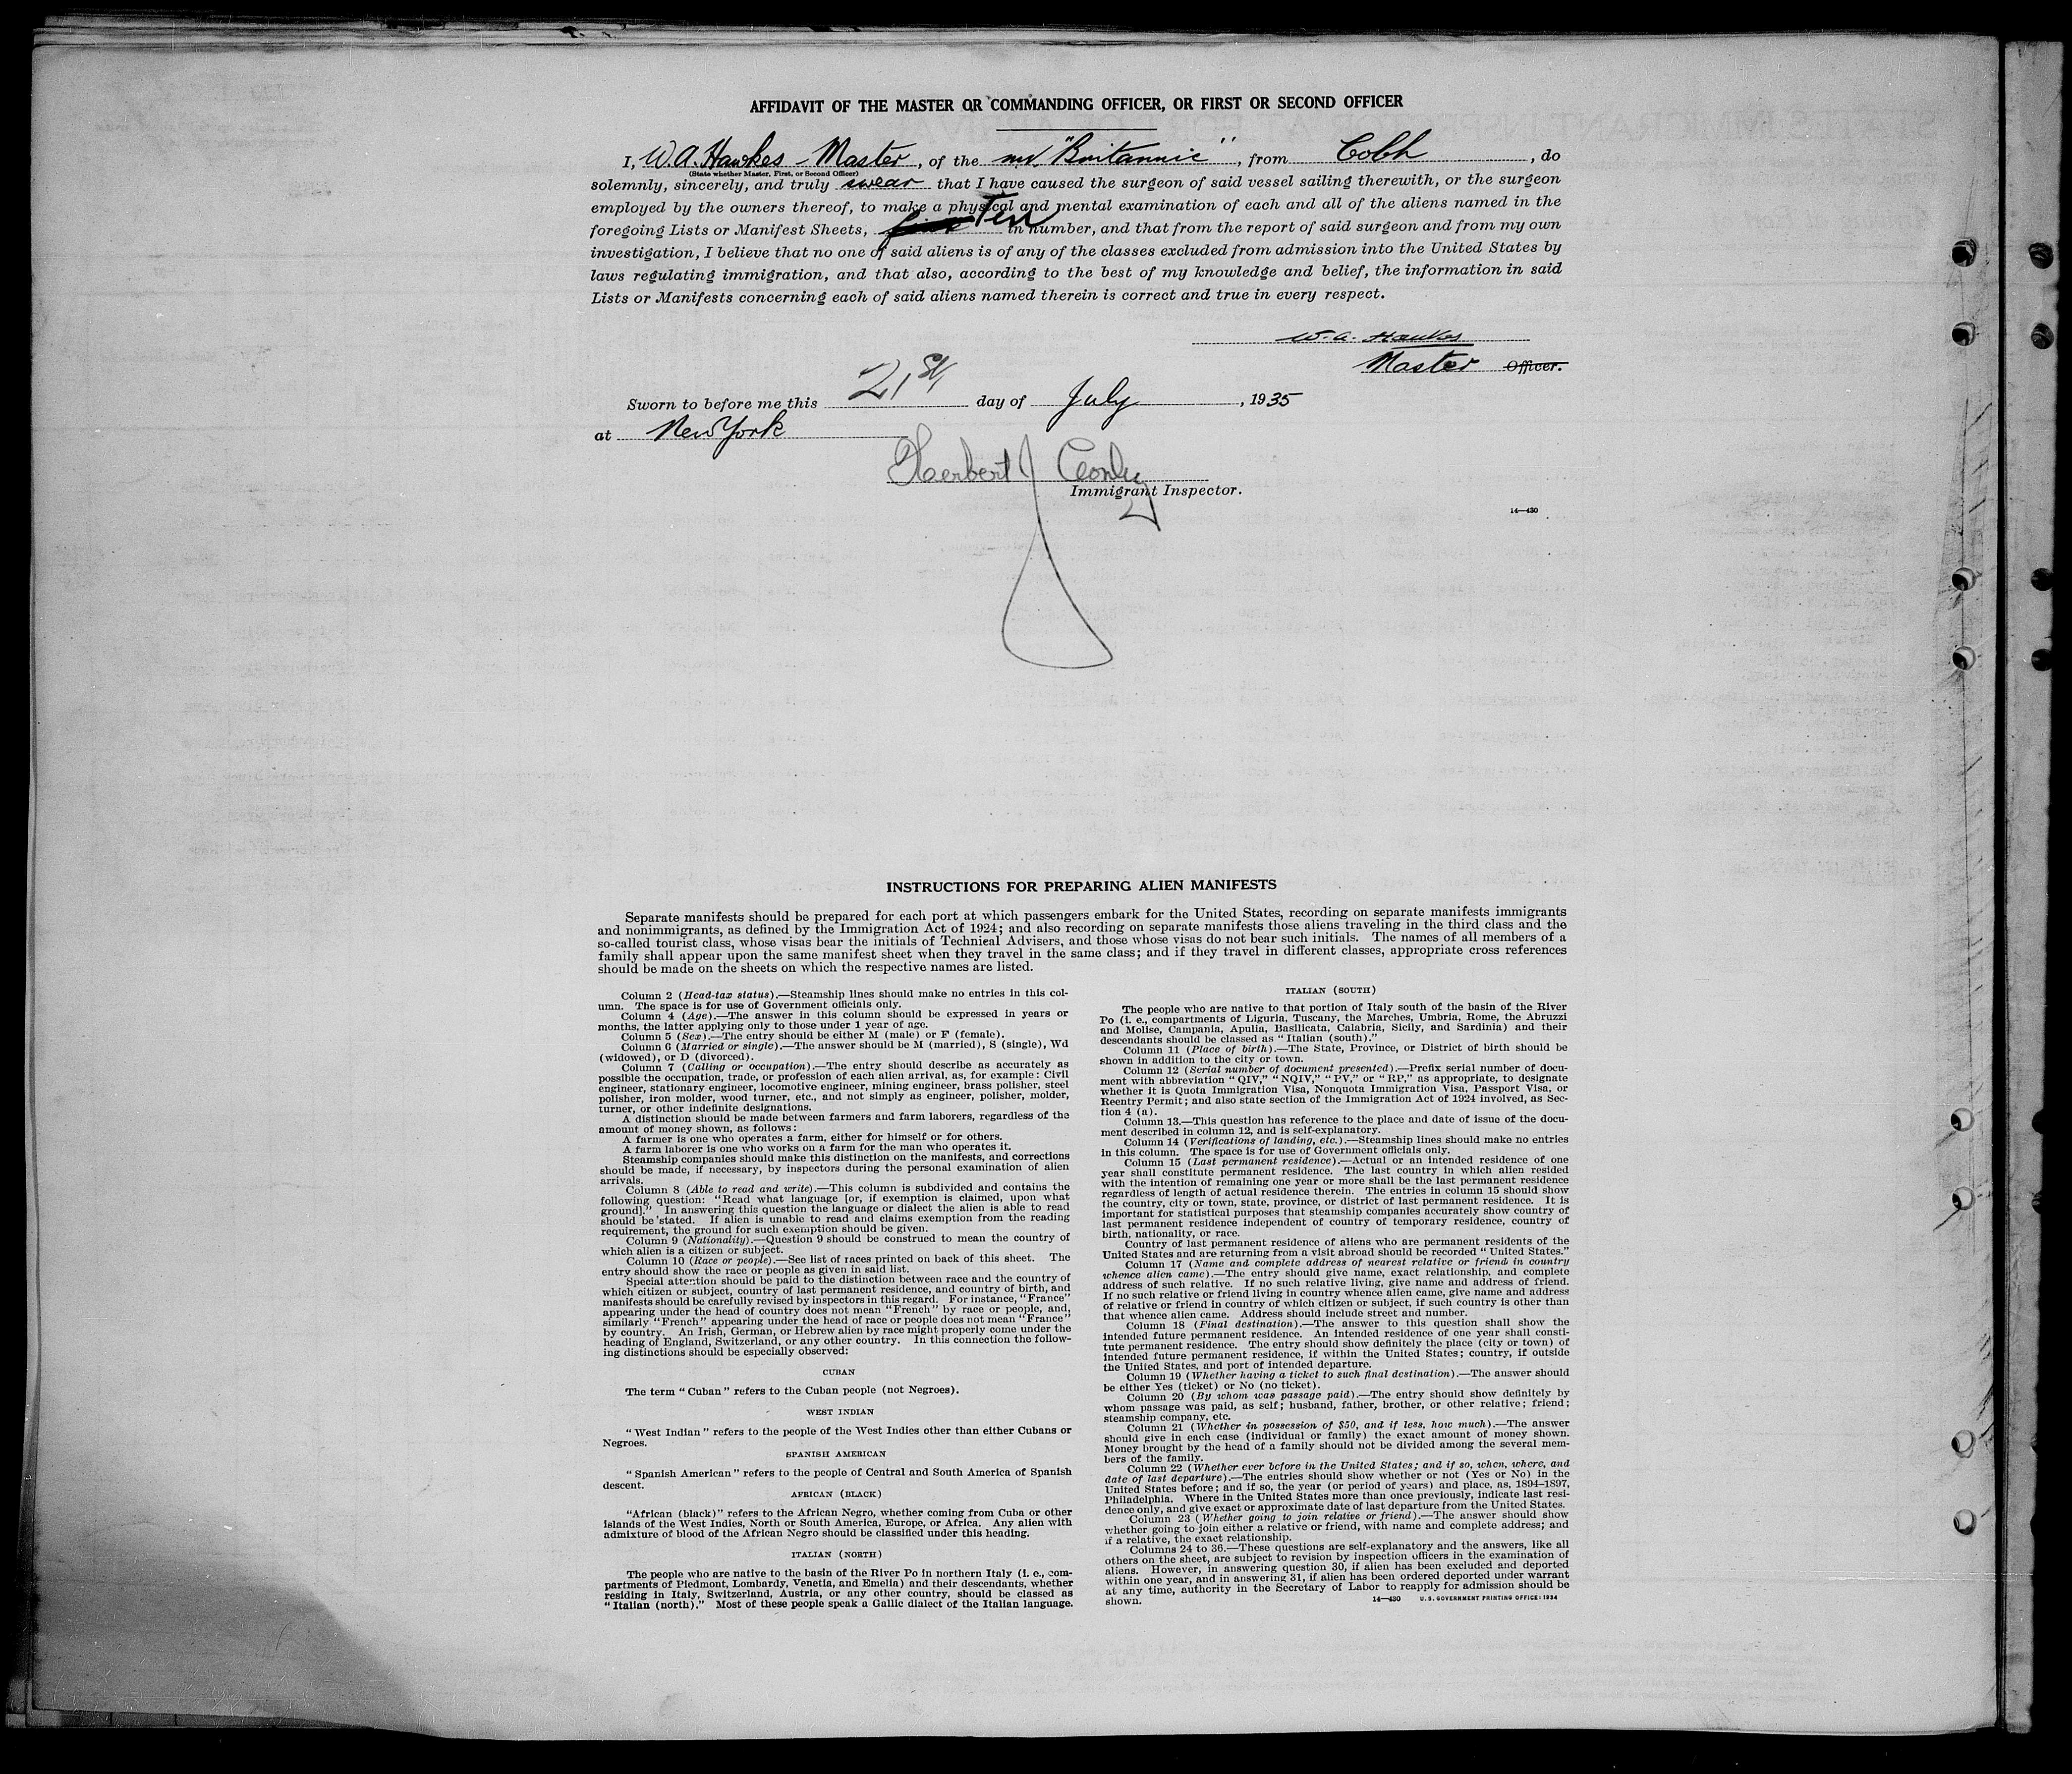 AFFIDAVIT OF THE MASTER OR COMMANDING OFFICER, OR FIRST OR SECOND OFFICER
I, W.A. Hawkes - Master, of the mv. "Britannic", from Cobh, do
(State whether Master, First, or Second Officer)
solemnly, sincerely, and truly swear that I have caused the surgeon of said vessel sailing therewith, or the surgeon
employed by the owners thereof, to make a physical and mental examination of each and all of the aliens named in the
foregoing Lists or Manifest Sheets, Ten in number, and that from the report of said surgeon and from my own
investigation, I believe that no one of said aliens is of any of the classes excluded from admission into the United States by
laws regulating immigration, and that also, according to the best of my knowledge and belief, the information in said
Lists or Manifests concerning each of said aliens named therein is correct and true in every respect.
W. A. Hawkes
Master Officer.
Sworn to before me this 21st day of July, 1935
at New York
Herbert J
Immigrant Inspector.
14—430
INSTRUCTIONS FOR PREPARING ALIEN MANIFESTS
Separate manifests should be prepared for each port at which passengers embark for the United States, recording on separate manifests immigrants
and nonimmigrants, as defined by the Immigration Act of 1924; and also recording on separate manifests those aliens traveling in the third class and the
so-called tourist class, whose visas bear the initials of Technical Advisers, and those whose visas do not bear such initials. The names of all members of a
family shall appear upon the same manifest sheet when they travel in the same class; and if they travel in different classes, appropriate cross references
should be made on the sheets on which the respective names are listed.
Column 2 (Head-tax status).—Steamship lines should make no entries in this col-
umn. The space is for use of Government officials only.
Column 4 (Age).—The answer in this column should be expressed in years or
months, the latter applying only to those under 1 year of age.
Column 5 (Sex).—The entry should be either M (male) or F (female).
Column 6 (Married or single).—The answer should be M (married), S (single), Wd
(widowed), or D (divorced).
Column 7 (Calling or occupation).—The entry should describe as accurately as
possible the occupation, trade, or profession of each alien arrival, as, for example: Civil
engineer, stationary engineer, locomotive engineer, mining engineer, brass polisher, steel
polisher, iron molder, wood turner, etc., and not simply as engineer, polisher, molder,
turner, or other indefinite designations.
A distinction should be made between farmers and farm laborers, regardless of the
amount of money shown, as follows:
A farmer is one who operates a farm, either for himself or for others.
A farm laborer is one who works on a farm for the man who operates it.
Steamship companies should make this distinction on the manifests, and corrections
should be made, if necessary, by inspectors during the personal examination of alien
arrivals.
Column 8 (Able to read and write).—This column is subdivided and contains the
following question: "Read what language [or, if exemption is claimed, upon what
ground]." In answering this question the language or dialect the alien is able to read
should be stated. If alien is unable to read and claims exemption from the reading
requirement, the ground for such exemption should be given.
Column 9 (Nationality).—Question 9 should be construed to mean the country of
which alien is a citizen or subject.
Column 10 (Race or people).—See list of races printed on back of this sheet. The
entry should show the race or people as given in said list.
Special attention should be paid to the distinction between race and the country of
which citizen or subject, country of last permanent residence, and country of birth, and
manifests should be carefully revised by inspectors in this regard. For instance, "France"
appearing under the head of country does not mean "French" by race or people, and,
similarly "French" appearing under the head of race or people does not mean "France"
by country. An Irish, German, or Hebrew alien by race might properly come under the
heading of England, Switzerland, or any other country. In this connection the follow-
ing distinctions should be especially observed:
CUBAN
The term "Cuban" refers to the Cuban people (not Negroes).
WEST INDIAN
"West Indian" refers to the people of the West Indies other than either Cubans or
Negroes.
SPANISH AMERICAN
"Spanish American" refers to the people of Central and South America of Spanish
descent.
AFRICAN (BLACK)
"African (black)" refers to the African Negro, whether coming from Cuba or other
islands of the West Indies, North or South America, Europe, or Africa. Any alien with
admixture of blood of the African Negro should be classified under this heading.
ITALIAN (NORTH)
The people who are native to the basin of the River Po in northern Italy (i. e., com-
partments of Piedmont, Lombardy, Venetia, and Emelia) and their descendants, whether
residing in Italy, Switzerland, Austria, or any other country, should be classed as
"Italian (north)." Most of these people speak a Gallic dialect of the Italian language.
ITALIAN (SOUTH)
The people who are native to that portion of Italy south of the basin of the River
Po (i. e., compartments of Liguria, Tuscany, the Marches, Umbria, Rome, the Abruzzi
and Molise, Campania, Apulia, Basilicata, Calabria, Sicily, and Sardinia) and their
descendants should be classed as "Italian (south)."
Column 11 (Place of birth).—The State, Province, or District of birth should be
shown in addition to the city or town.
Column 12 (Serial number of document presented).—Prefix serial number of docu-
ment with abbreviation "QIV," "NQIV," "PV," or "RP," as appropriate, to designate
whether it is Quota Immigration Visa, Nonquota Immigration Visa, Passport Visa, or
Reentry Permit; and also state section of the Immigration Act of 1924 involved, as Sec-
tion 4 (a).
Column 13.—This question has reference to the place and date of issue of the docu-
ment described in column 12, and is self-explanatory.
Column 14 (Verifications of landing, etc.).—Steamship lines should make no entries
in this column. The space is for use of Government officials only.
Column 15 (Last permanent residence).—Actual or an intended residence of one
year shall constitute permanent residence. The last country in which alien resided
with the intention of remaining one year or more shall be the last permanent residence
regardless of length of actual residence therein. The entries in column 15 should show
the country, city or town, state, province, or district of last permanent residence. It is
important for statistical purposes that steamship companies accurately show country of
last permanent residence independent of country of temporary residence, country of
birth, nationality, or race.
Country of last permanent residence of aliens who are permanent residents of the
United States and are returning from a visit abroad should be recorded "United States."
Column 17 (Name and complete address of nearest relative or friend in country
whence alien came).—The entry should give name, exact relationship, and complete
address of such relative. If no such relative living, give name and address of friend.
If no such relative or friend living in country whence alien came, give name and address
of relative or friend in country of which citizen or subject, if such country is other than
that whence alien came. Address should include street and number.
Column 18 (Final destination).—The answer to this question shall show the
intended future permanent residence. An intended residence of one year shall consti-
tute permanent residence. The entry should show definitely the place (city or town) of
intended future permanent residence, if within the United States; country, if outside
the United States, and port of intended departure.
Column 19 (Whether having a ticket to such final destination).—The answer should
be either Yes (ticket) or No (no ticket).
Column 20 (By whom was passage paid).—The entry should show definitely by
whom passage was paid, as self; husband, father, brother, or other relative; friend;
steamship company, etc.
Column 21 (Whether in possession of $50, and if less, how much).—The answer
should give in each case (individual or family) the exact amount of money shown.
Money brought by the head of a family should not be divided among the several mem-
bers of the family.
Column 22 (Whether ever before in the United States; and if so, when, where, and
date of last departure).—The entries should show whether or not (Yes or No) in the
United States before; and if so, the year (or period of years) and place, as, 1894–1897,
Philadelphia. Where in the United States more than once previously, indicate last resi-
dence only, and give exact or approximate date of last departure from the United States.
Column 23 (Whether going to join relative or friend).—The answer should show
whether going to join either a relative or friend, with name and complete address; and
if a relative, the exact relationship.
Columns 24 to 36.—These questions are self-explanatory and the answers, like all
others on the sheet, are subject to revision by inspection officers in the examination of
aliens. However, in answering question 30, if alien has been excluded and deported
within one year, and in answering 31, if alien has been ordered deported under warrant
at any time, authority in the Secretary of Labor to reapply for admission should be
shown.
14—430 U. S. GOVERNMENT PRINTING OFFICE: 1934